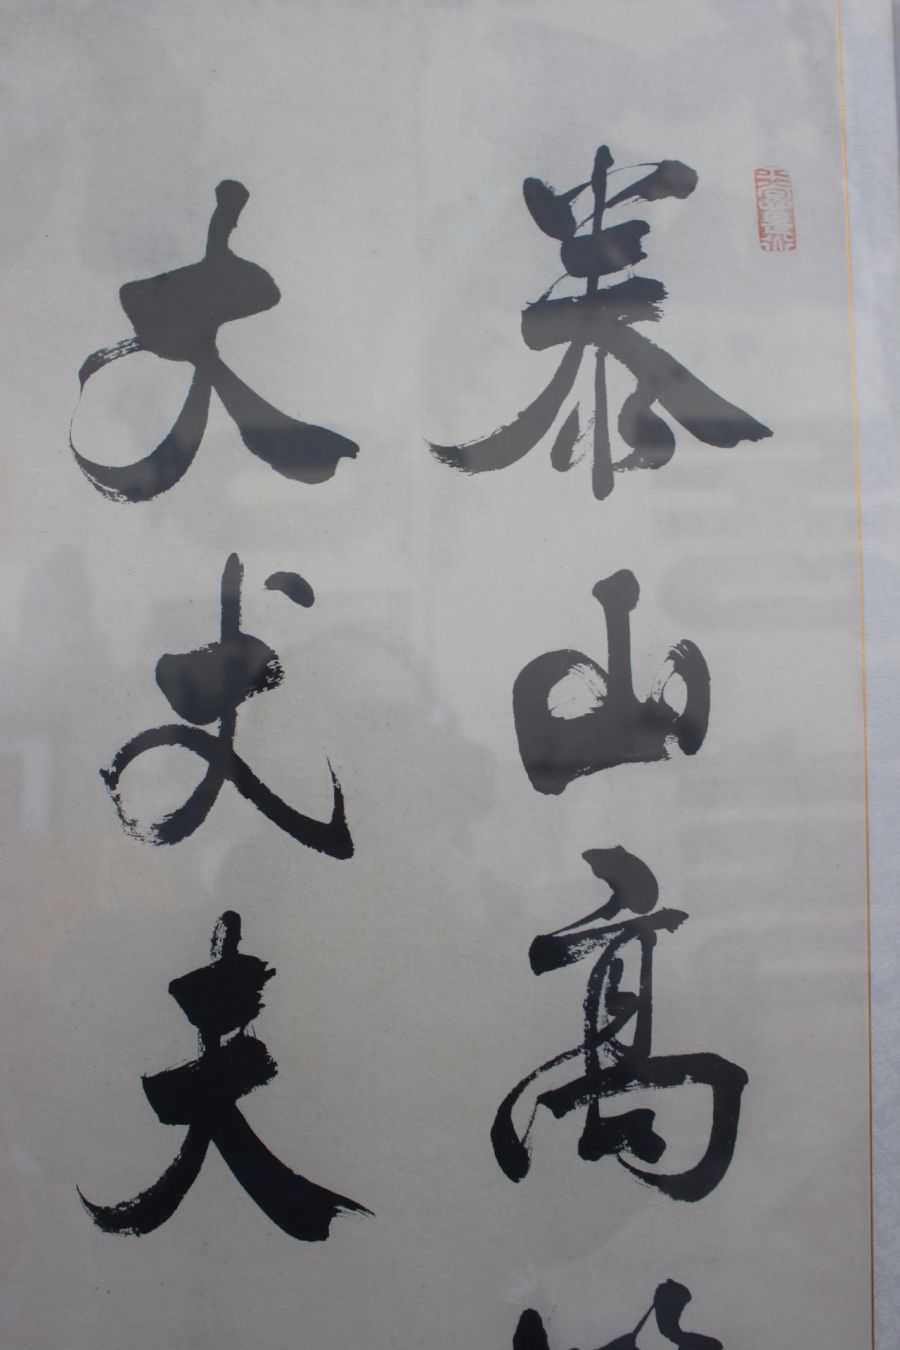 泰山高
大丈夫